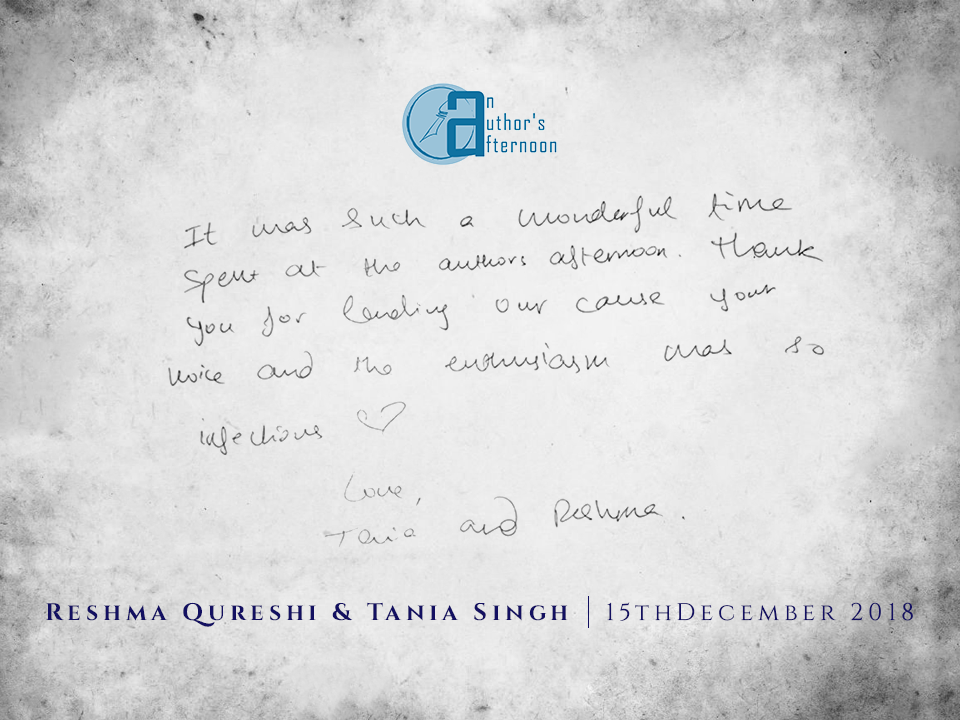 an
author's
afternoon
It was such a wonderful time
spent at the authors afternoon. Thank
you for lending our cause your
voice and the enthusiasm was so
infectious ♡
Love,
Tania and Reshma.
RESHMA QURESHI & TANIA SINGH | 15THDECEMBER 2018